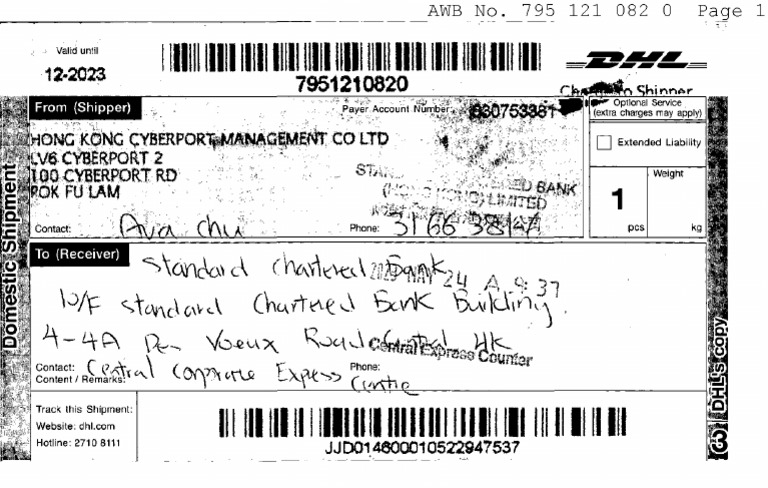 AWB No. 795 121 082 0 Page 1
Valid until
12-2023
7951210820
DHL
to Shipper
From (Shipper)
Payer Account Number
630753381
Optional Service
(extra charges may apply)
HONG KONG CYBERPORT MANAGEMENT CO LTD
LV6 CYBERPORT 2
100 CYBERPORT RD
POK FU LAM
Extended Liability
BANK
LIMITED
Weight
1
pcs
kg
Contact: Ava Chu
Phone: 3166 3814
Domestic Shipment
To (Receiver)
Standard Chartered Bank
24 A 9:37
10/F Standard Chartered Bank Building,
4-4A Des Voeux Road Central HK
Central Express Counter
Contact: Central Corporate Express Centre
Phone:
Content / Remarks:
Track this Shipment:
Website: dhl.com
Hotline: 2710 8111
JJD014600010522947537
3 DHL's copy